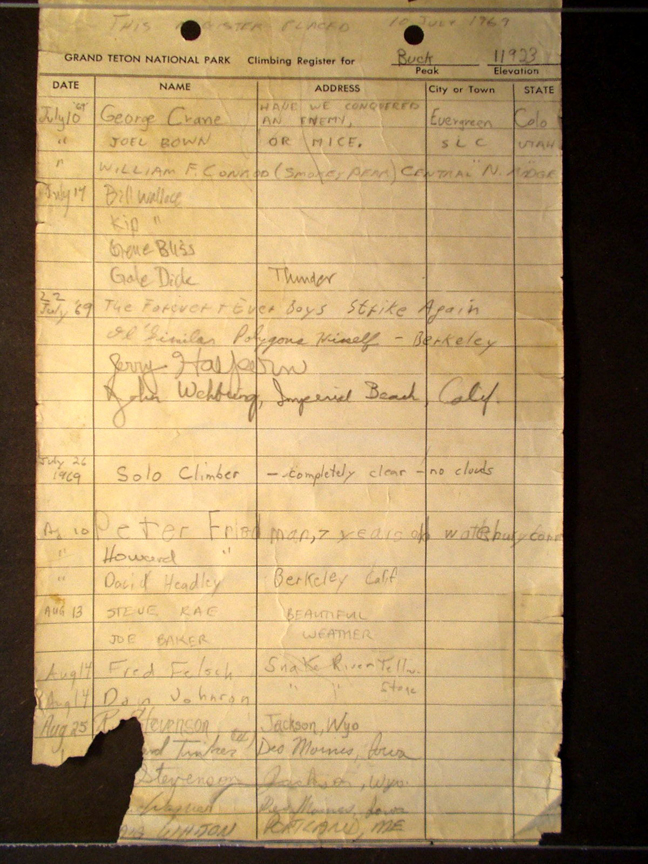 THIS REGISTER PLACED 10 JULY 1969
GRAND TETON NATIONAL PARK Climbing Register for Buck 11923
Peak Elevation
DATE NAME ADDRESS City or Town STATE
HAVE WE CONQUERED
July 10 '69 George Crane AN ENEMY, Evergreen Colo
" JOEL BOWN OR MICE. SLC UTAH
" WILLIAM F. CONROD (SMOKEY BEAR) CENTRAL N.
July 17 Bill Wallace
Kip "
Gene Bliss
Gale Dick Thunder
22 July '69 The Forever & Ever Boys Strike Again
Ol' Similar Polygons Himself - Berkeley
Jerry Halpern
John Wehburg, Imperial Beach, Calif.
July 26 1969 Solo Climber - completely clear - no clouds
Aug 10 Peter Friedman, 7 years old waterbury conn
" Howard "
" David Headley Berkeley Calif
AUG 13 STEVE RAE BEAUTIFUL
JOE BAKER WEATHER
Aug 14 Fred Felsch Snake River Tellu.
Aug 14 Dain Johnson " " Stone
Aug 25 R. Stevenson Jackson, Wyo
Des Moines, Iowa
Stevenson Jackson, Wyo.
Des Moines, Iowa
PORTLAND, ME